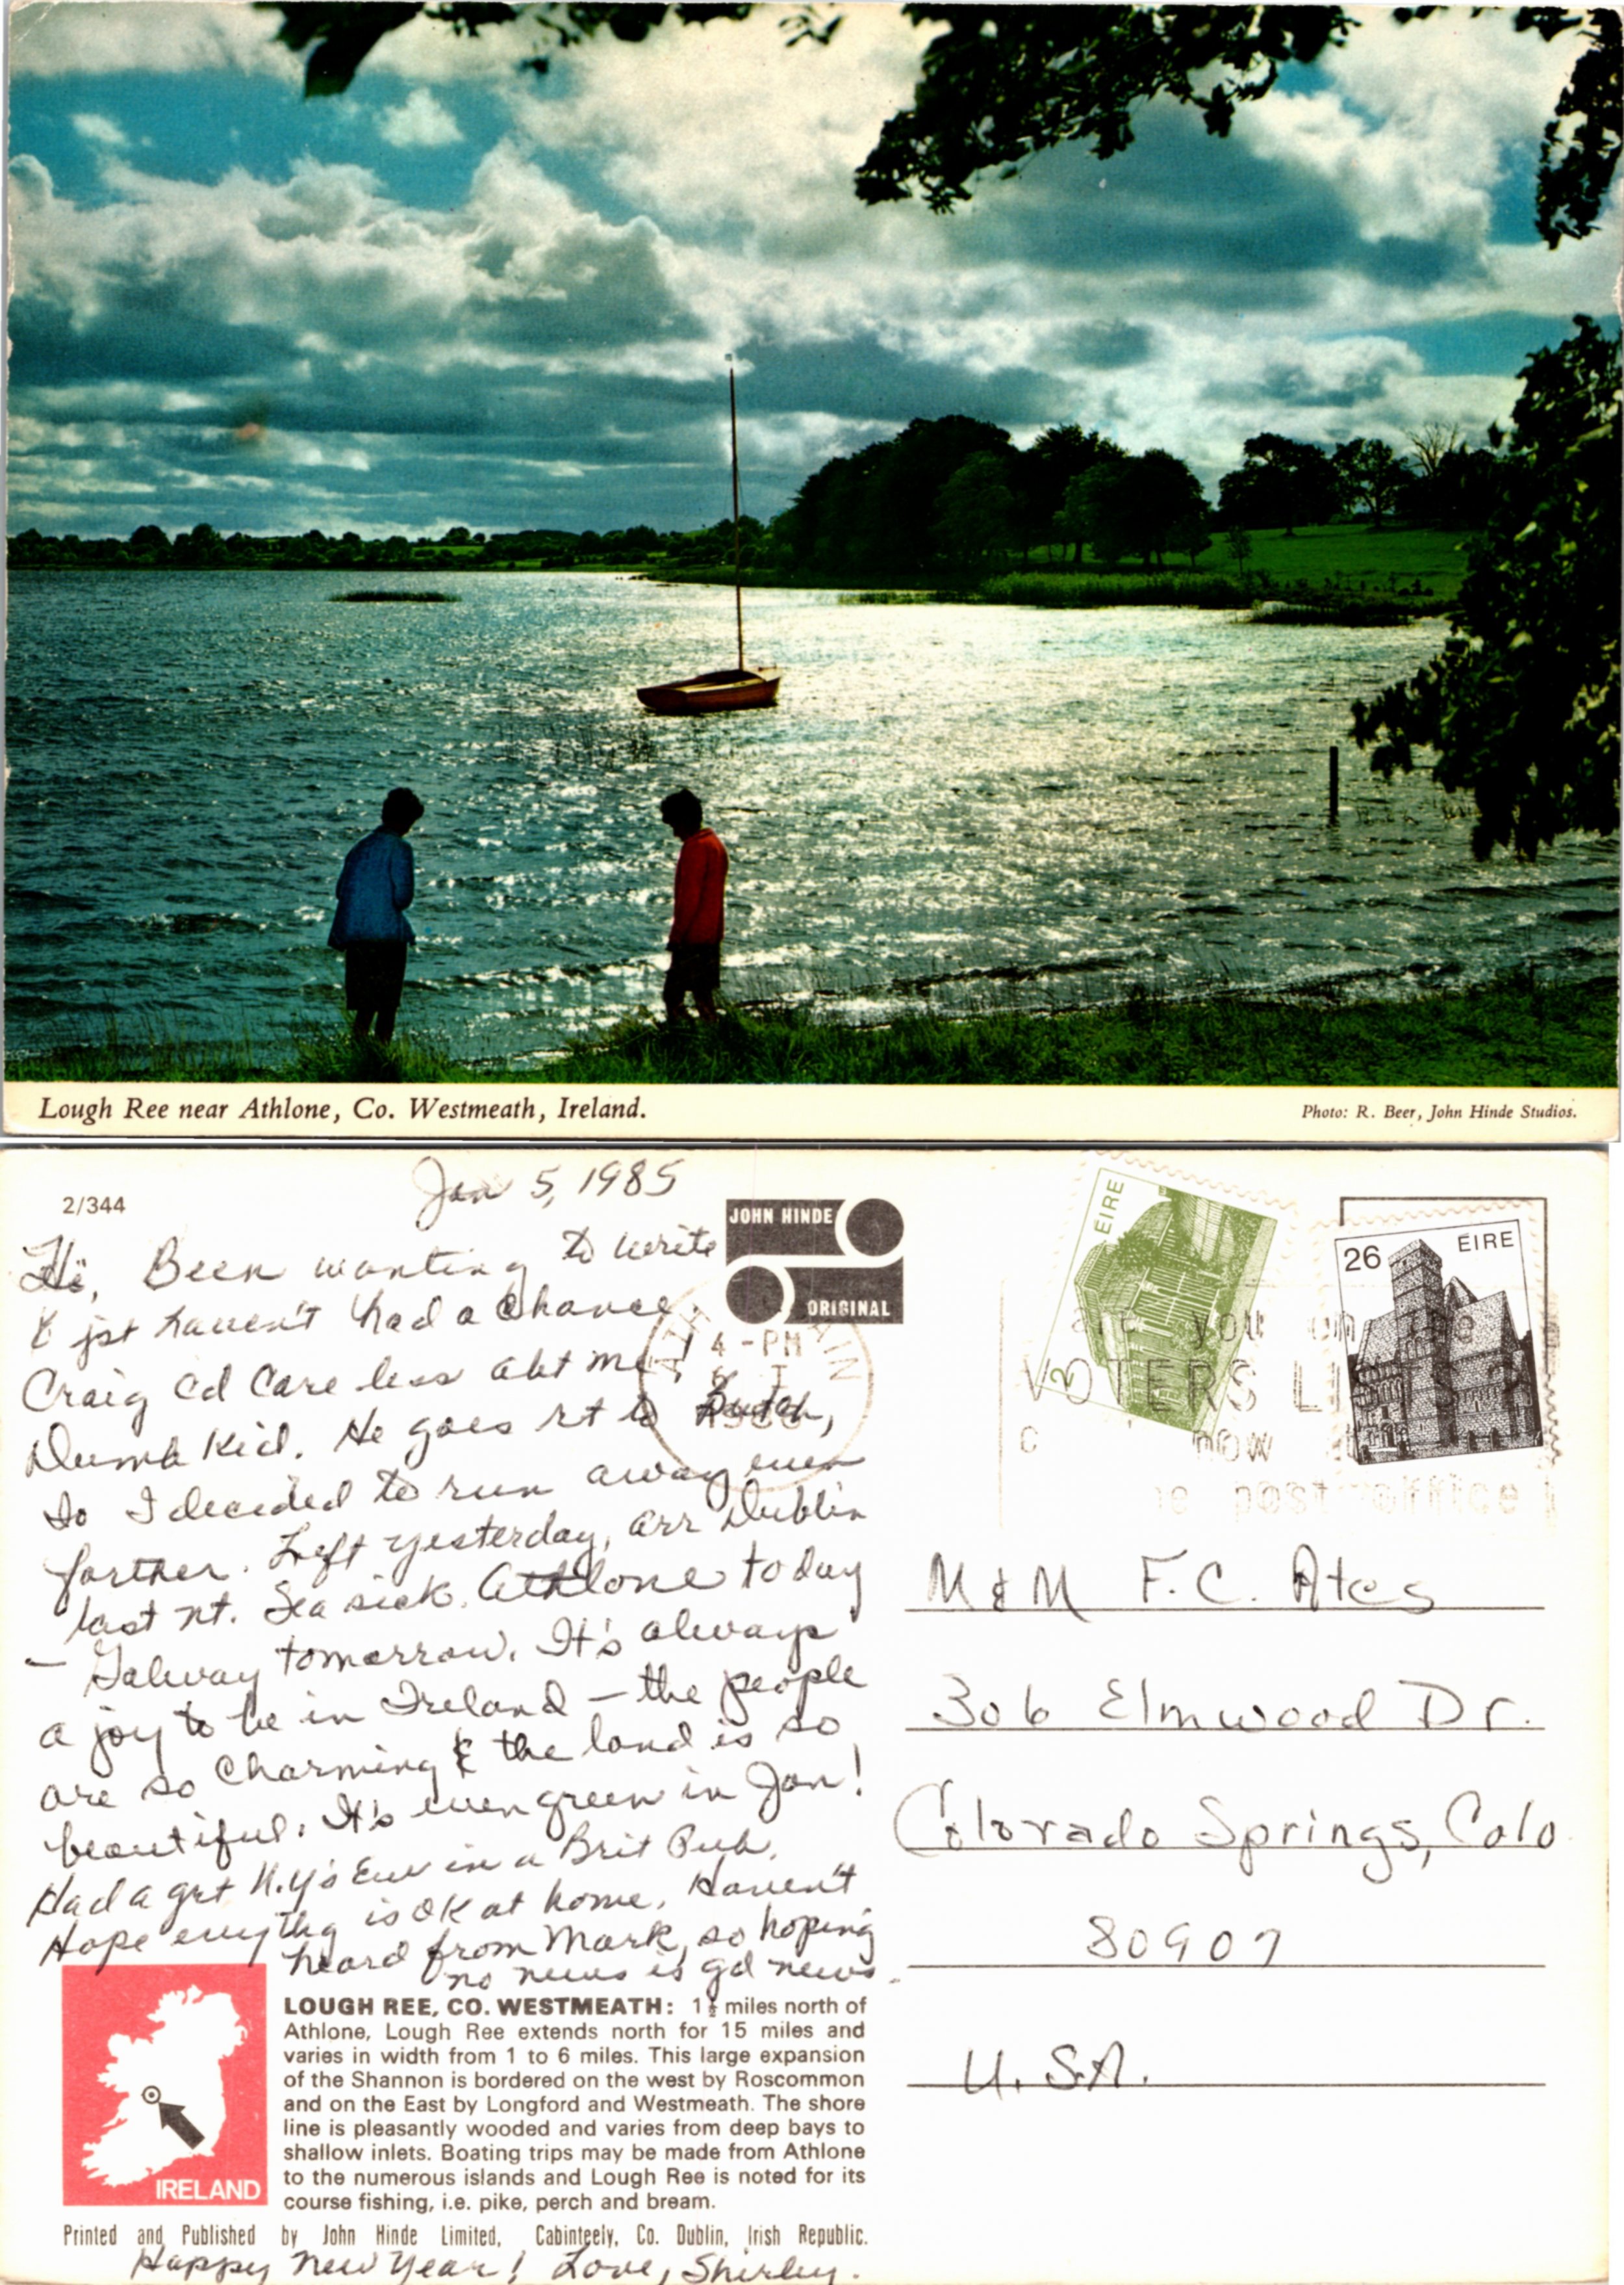 Lough Ree near Athlone, Co. Westmeath, Ireland.
Photo: R. Beer, John Hinde Studios.
2/344
Jan 5, 1985
Hi, Been wanting to write
& jst haven't had a chance.
Craig cd care less abt me
Dumb kid. He goes rt to Butch,
So I decided to run away even
farther. Left yesterday, arr Dublin
last nt. Sea sick. Athlone today
– Galway tomorrow. It's always
a joy to be in Ireland – the people
are so charming & the land is so
beautiful. It's even green in Jan!
Had a grt N.Y's Eve in a Brit Pub.
Hope everythg is OK at home. Haven't
heard from Mark, so hoping
no news is gd news.
JOHN HINDE
ORIGINAL
4-PM
ÉIRE
2
26
ÉIRE
are you on the
VOTERS LISTS
now
post office
M & M F.C. Ates
306 Elmwood Dr.
Colorado Springs, Colo
80907
U.S.A.
IRELAND
LOUGH REE, CO. WESTMEATH: 1½ miles north of
Athlone, Lough Ree extends north for 15 miles and
varies in width from 1 to 6 miles. This large expansion
of the Shannon is bordered on the west by Roscommon
and on the East by Longford and Westmeath. The shore
line is pleasantly wooded and varies from deep bays to
shallow inlets. Boating trips may be made from Athlone
to the numerous islands and Lough Ree is noted for its
course fishing, i.e. pike, perch and bream.
Printed and Published by John Hinde Limited, Cabinteely, Co. Dublin, Irish Republic.
Happy New Year! Love, Shirley.